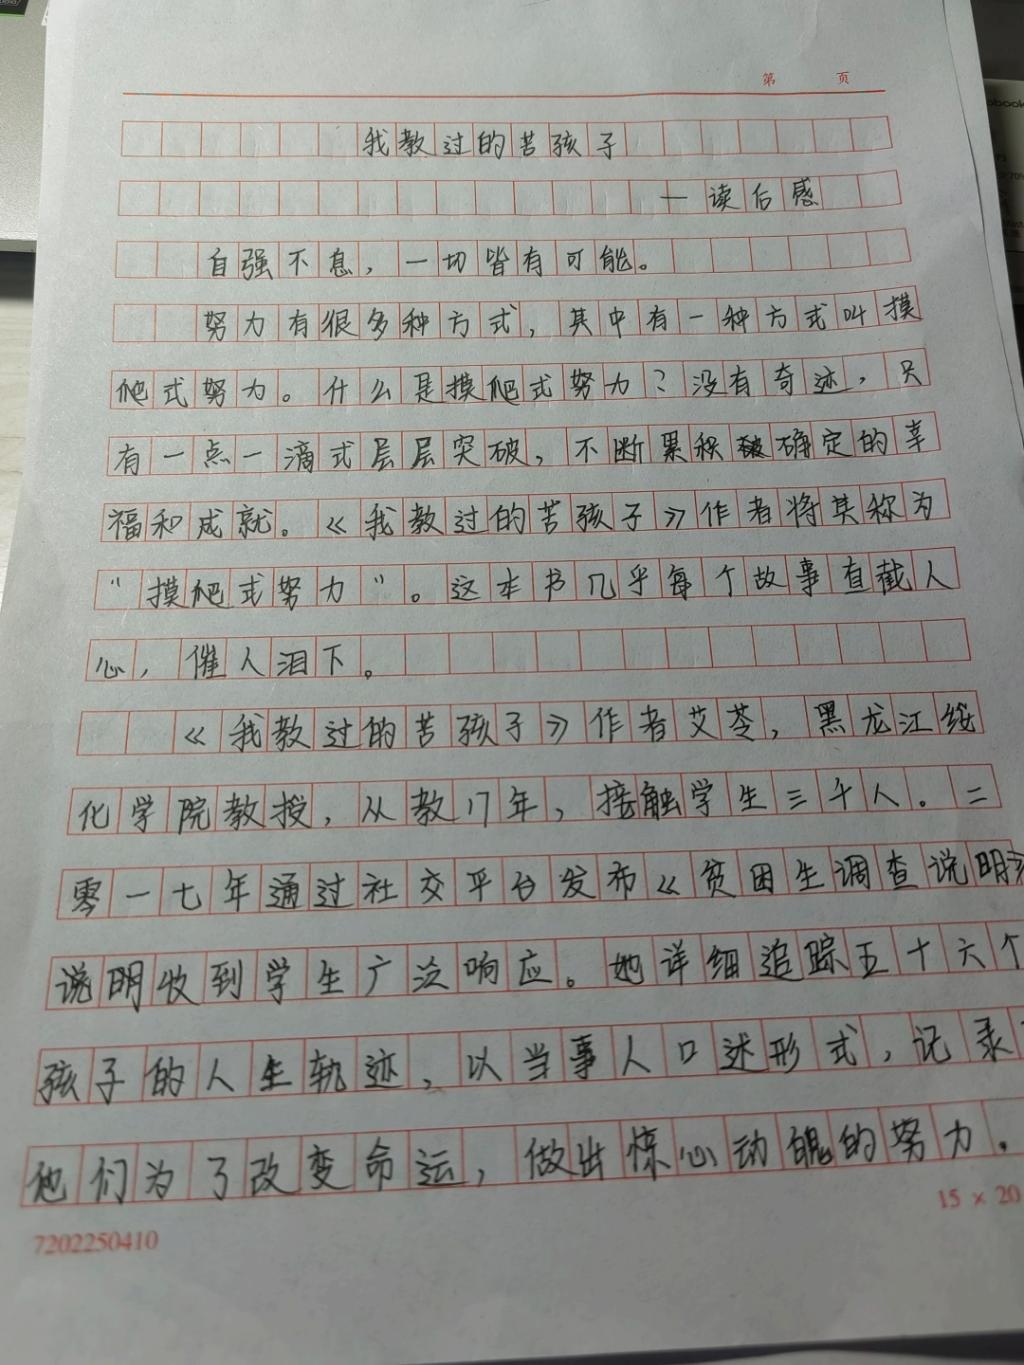 第 页
我教过的苦孩子
—读后感
自强不息，一切皆有可能。
努力有很多种方式，其中有一种方式叫摸
爬式努力。什么是摸爬式努力？没有奇迹，只
有一点一滴式层层突破，不断累积确定的幸
福和成就。《我教过的苦孩子》作者将其称为
“摸爬式努力”。这本书几乎每个故事直截人
心，催人泪下。
《我教过的苦孩子》作者艾苓，黑龙江绥
化学院教授，从教17年，接触学生三千人。二
零一七年通过社交平台发布《贫困生调查说明
说明收到学生广泛响应。她详细追踪五十六个
孩子的人生轨迹，以当事人口述形式，记录
他们为了改变命运，做出惊心动魄的努力。
7202250410
15 × 20